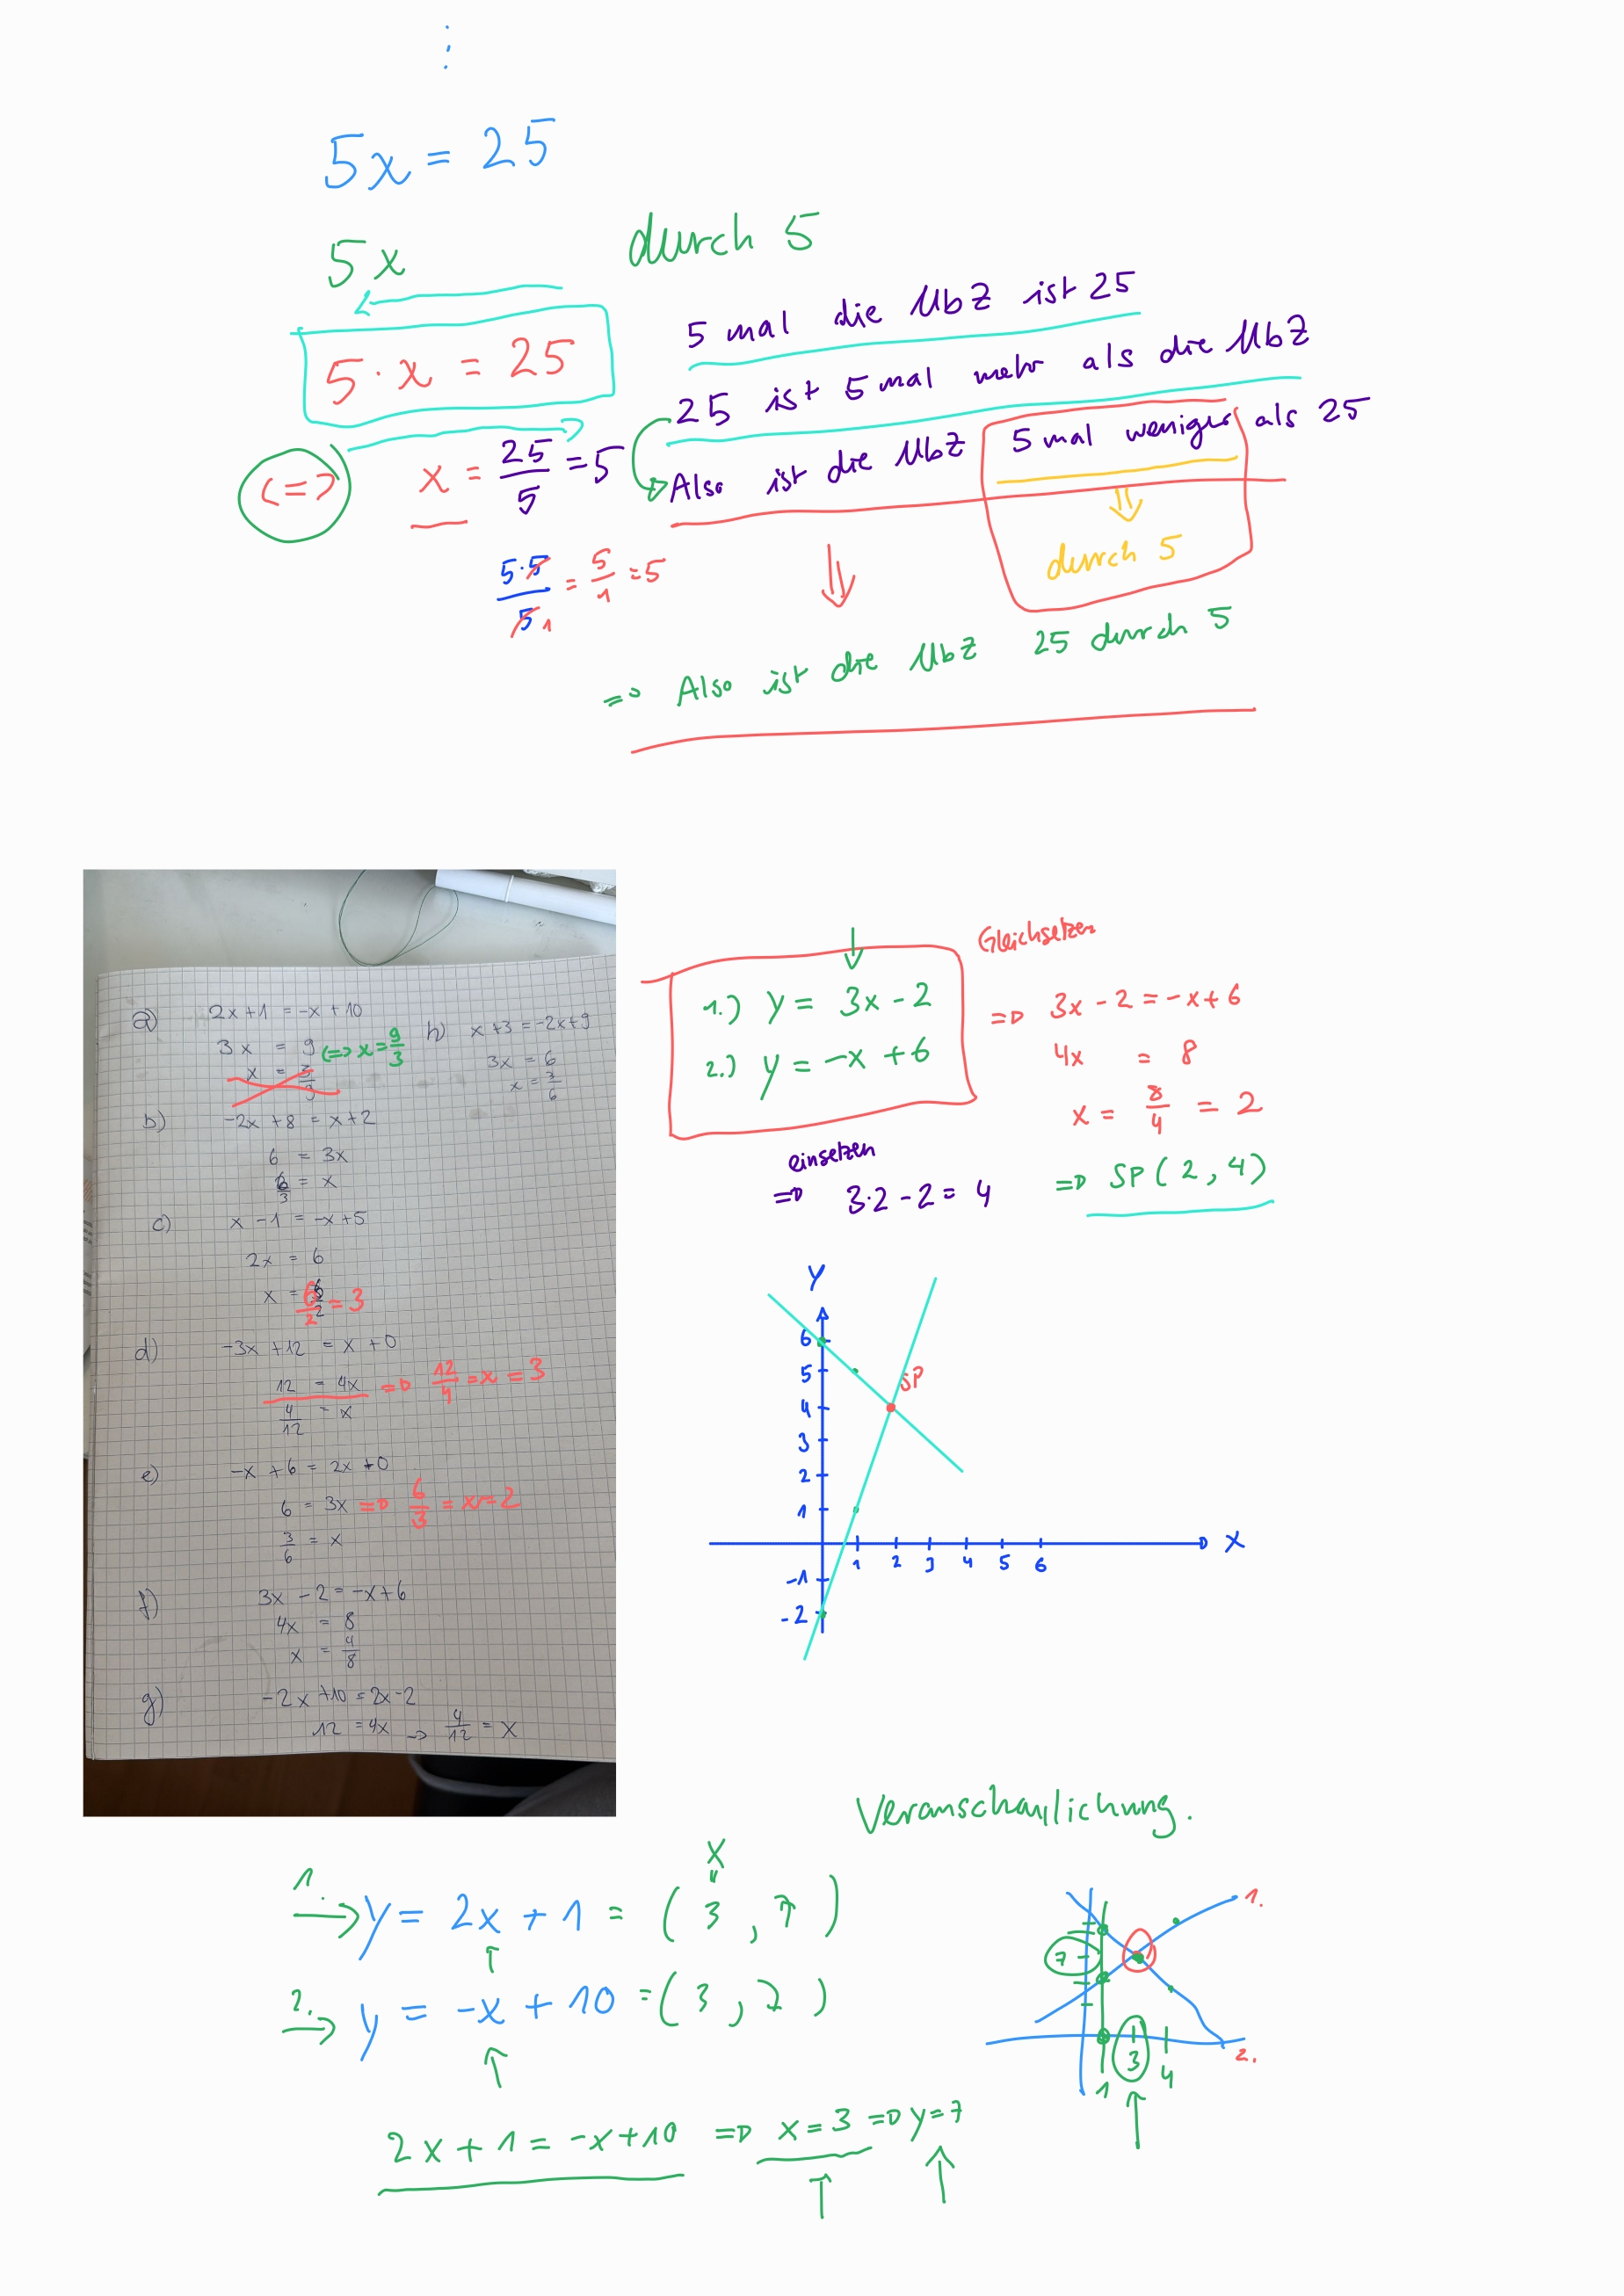 5x = 25
5x durch 5
5 mal die UbZ ist 25
5 · x = 25
25 ist 5 mal mehr als die UbZ
Also ist die UbZ 5 mal weniger als 25
<=> x = 25/5 = 5
durch 5
5·5/5 1 = 5/1 = 5
=> Also ist die UbZ 25 durch 5
a) 2x+1 = -x+10
3x = 9 <=> x = 9/3
x = 3/9
h) x+3 = -2x+9
3x = 6
x = 3/6
b) -2x+8 = x+2
6 = 3x
6/3 = x
c) x-1 = -x+5
2x = 6
x = 6/2 = 3
d) -3x+12 = x+0
12 = 4x => 12/4 = x = 3
4/12 = x
e) -x+6 = 2x+0
6 = 3x => 6/3 = x = 2
3/6 = x
f) 3x-2 = -x+6
4x = 8
x = 4/8
g) -2x+10 = 2x-2
12 = 4x -> 4/12 = x
Gleichsetzen
1.) y = 3x - 2
2.) y = -x + 6
=> 3x - 2 = -x + 6
4x = 8
x = 8/4 = 2
einsetzen
=> 3·2 - 2 = 4
=> SP (2, 4)
Y
6
5
SP
4
3
2
1
X
1 2 3 4 5 6
-1
-2
Veranschaulichung.
X
1. y = 2x + 1 = (3, 7)
2. y = -x + 10 = (3, 7)
2x + 1 = -x + 10 => x = 3 => y = 7
1.
7
2.
1 3 4